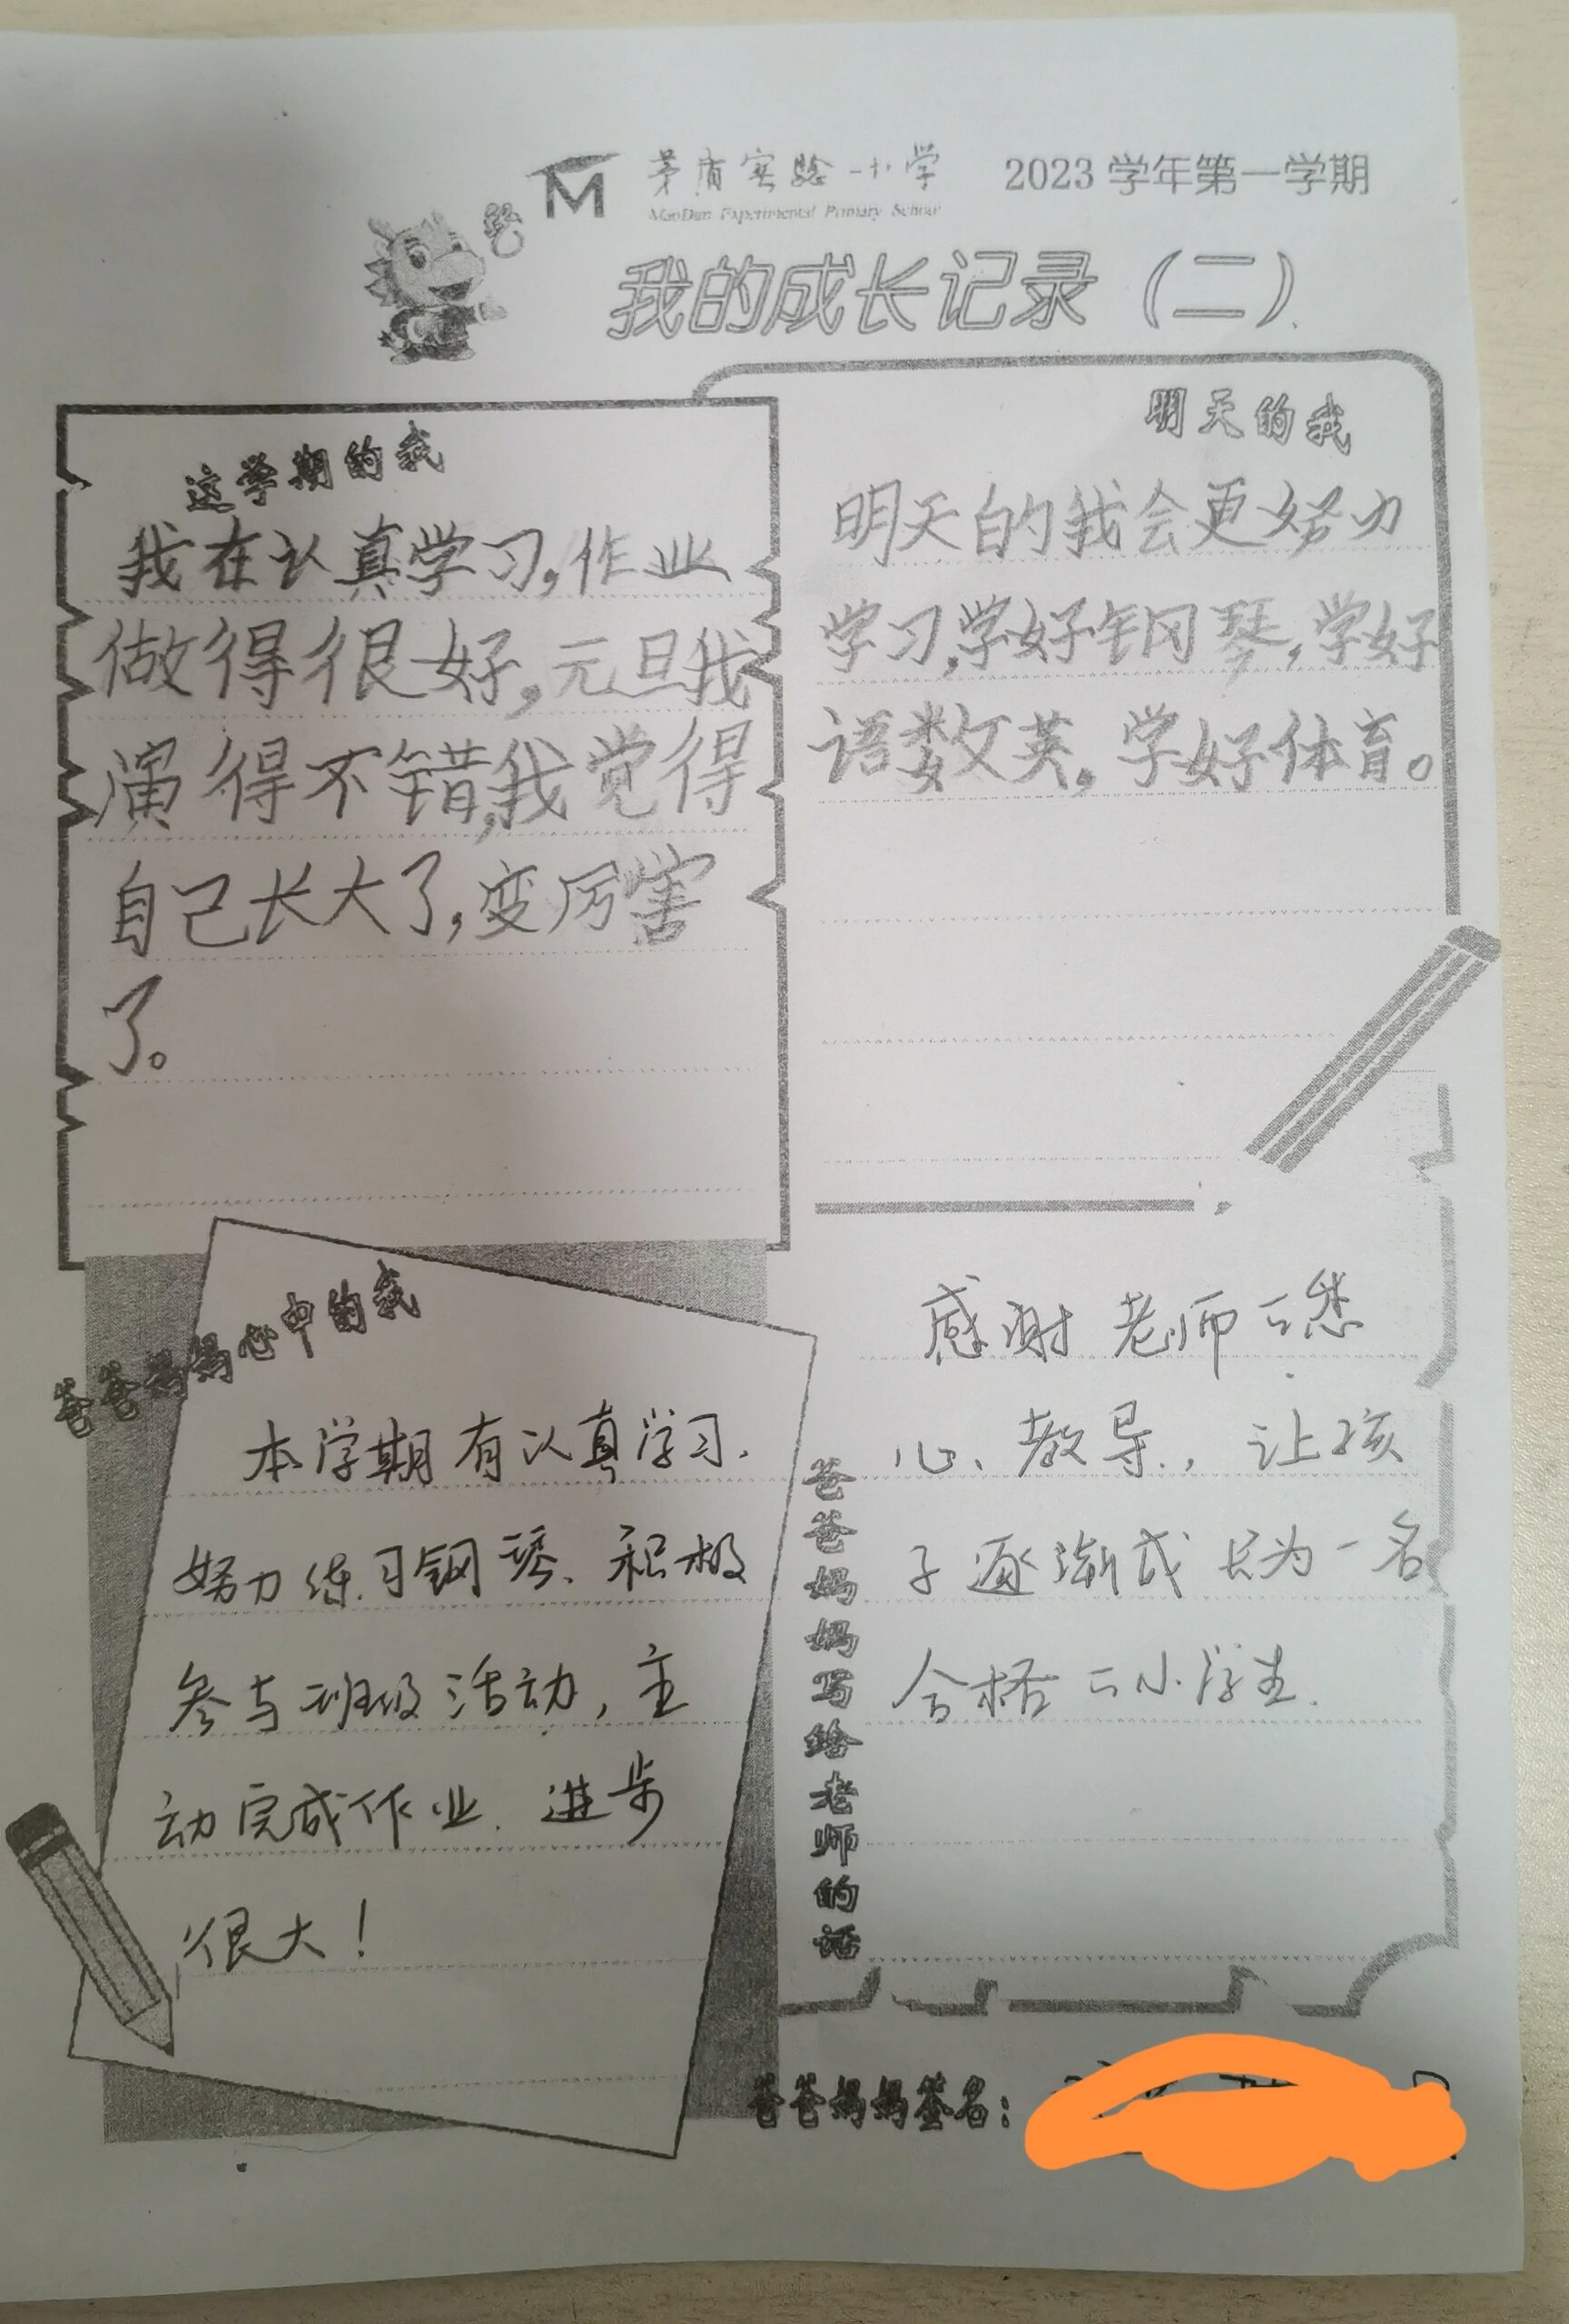 茅盾实验小学 2023 学年第一学期
MaoDun Experimental Primary School
我的成长记录（二）
这学期的我
我在认真学习,作业
做得很好,元旦我
演得不错,我觉得
自己长大了,变厉害
了。
明天的我
明天的我会更努力
学习,学好钢琴,学好
语数英,学好体育。
爸爸妈妈心中的我
本学期有认真学习、
努力练习钢琴、积极
参与班级活动,主
动完成作业.进步
很大!
爸爸妈妈写给老师的话
感谢老师的悉
心、教导,让孩
子逐渐成长为一名
合格的小学生.
爸爸妈妈签名：